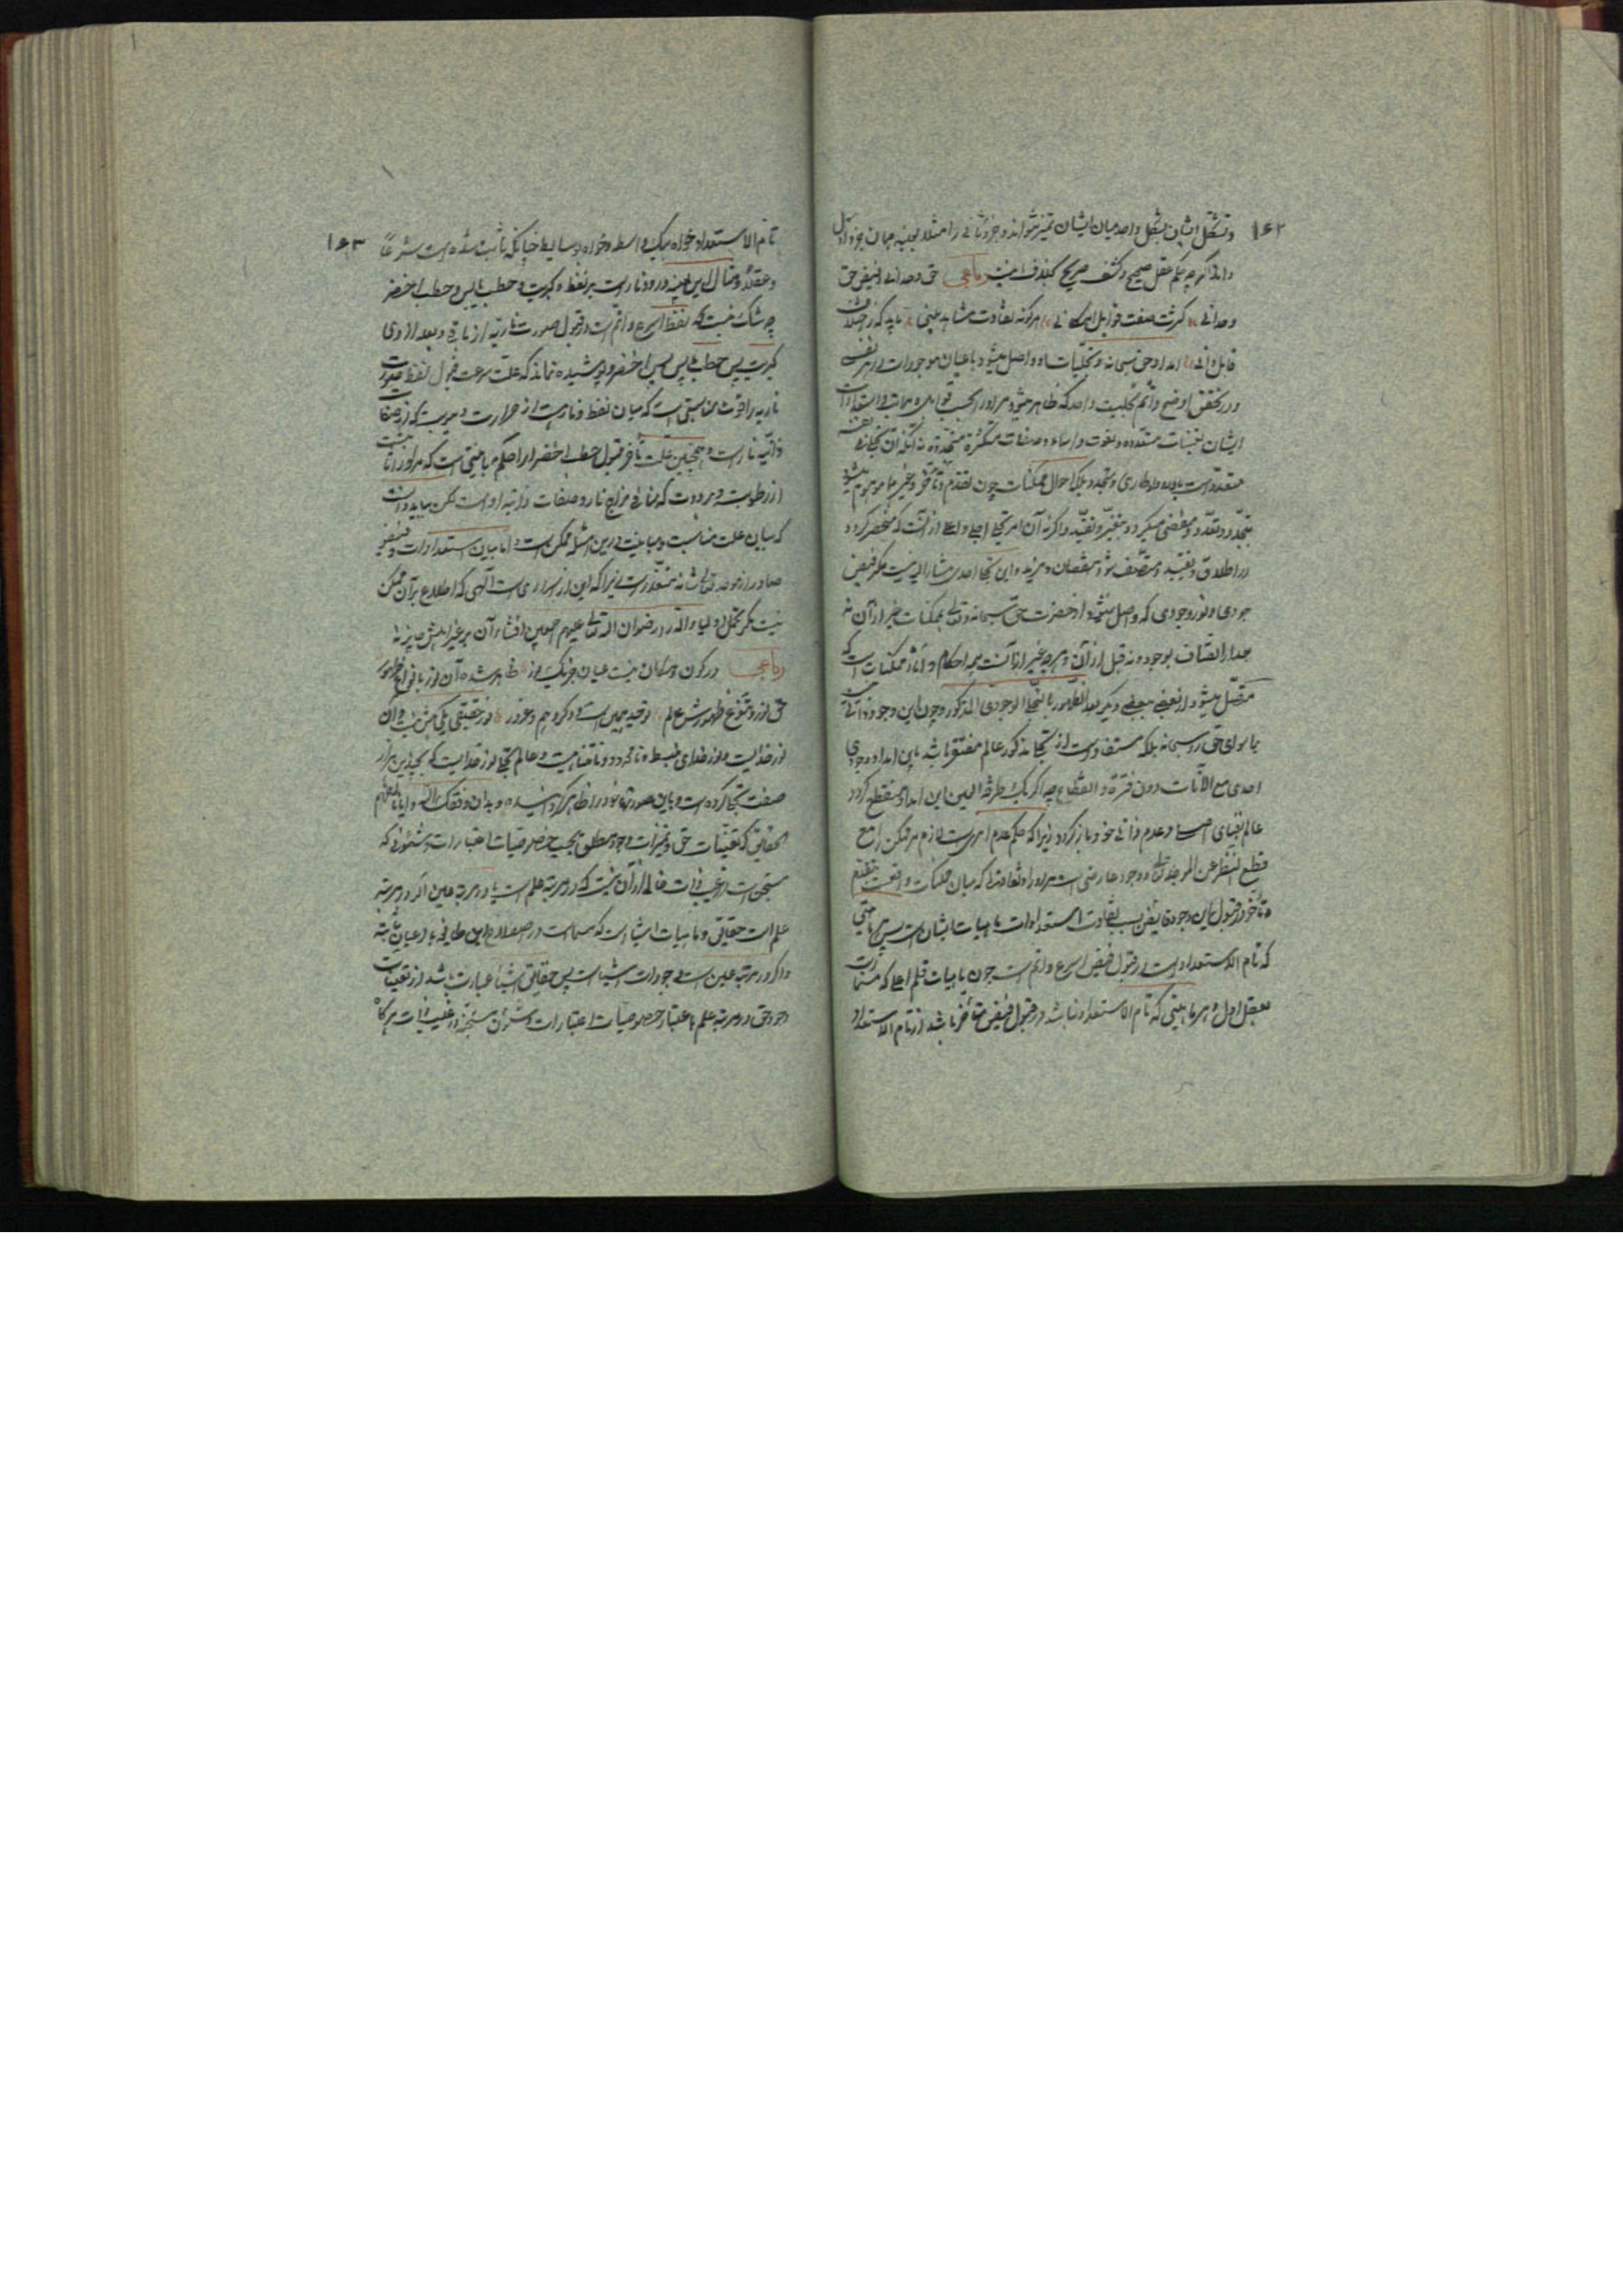 ۱۶۲
و تشکل ایشان بشکل واحد میان ایشان تمیز نتواند و جزو ثانی را مثلا بعینه همان جزو اول
داند اگرچه بحکم عقل صحیح و کشف صریح بخلاف اینست رباعی حق وحدانی و فیض حق
وحدانی کثرت صفت قوابل امکانی هر گونه تفاوت مشاهد بینی باید که ز اختلاف
قابل دانی امداد حق سبحانه و تجلیات او واصل میشود باعیان موجودات در هر نفسی
و در تحقیق اوضح و اتم تجلییست واحد که ظاهر میشود مر او را بحسب قوابل و مراتب و استعدادات
ایشان تعینات متعدده و نعوت و اسماء و صفات متکثره متجدده نه آنکه آن تجلی فی نفسه
متعددست یا ورود او طاری و متجدد بلکه احوال ممکنات چون تقدم و تأخر و غیرهما موهم میشود
بتجدد و تعدد و مفضی میگردد بتغیر و تقید و اگرنه آن امر تجلی اجلی و اعلی از آنست که منحصر گردد
در اطلاق و تقیید و متصف شود بنقصان و مزید و این تجلی احدی مشارالیه نیست مگر فیض
جودی و نور وجودی که واصل نمیشود از حضرت حق سبحانه و تعالی بممکنات غیر از آن نه
بعد از اتصاف بوجود و نه قبل از آن و هر چه غیر از آنست همه احکام و آثار ممکناتست که
متصل میشود از بعضی ببعضی دیگر بعد الظهور بالتجلی الوجودی المذکور و چون این وجود ذاتی نیست
ما سوای حق را سبحانه بلکه مستفادست از تجلی مذکور عالم مفتقر باشد باین امداد وجودی
احدی مع الآنات دون فترة و انقطاع چه اگر یک طرفة العین این امداد منقطع گردد
عالم بفنای اصلی و عدم ذاتی خود باز گردد زیرا که حکم عدم امریست لازم مر ممکن را مع
قطع النظر عن الموجد تعالی و وجود عارضی است مر او را و تفاوتی که میان ممکنات واقعست بتقدم
و تأخر در قبول این وجود فایض بسبب تفاوت استعدادات ماهیات ایشانست پس هر ماهیتی
که تام الاستعدادست در قبول فیض اسرع و اتم است چون ماهیات قلم اعلی که مسماست
بعقل اول و هر ماهیتی که تام الاستعداد نباشد در قبول فیض متأخر باشد از تام الاستعداد
۱۶۳
تام الاستعداد خواه بیک واسطه و خواه بوسایط چنانکه ثابت شده است شرعاً
و عقلاً و مثال این بعینه ورود نارست بر نفط و کبریت و حطب یابس و حطب اخضر
چه شک نیست که نفط اسرع و اتم است در قبول صورت ناریه از باقی و بعد از وی
کبریت پس حطب یابس پس اخضر و پوشیده نماند که علت سرعت قبول نفط صورت
ناریه را قوت مناسبتی است که میان نفط و نارست از حرارت و یبوست که از صفات
ذاتیه نارست و همچنین علت تأخر قبول حطب اخضر او را حکم مباینتی است که مر او را ثابتست
از رطوبت و برودت که منافی مزاج نار و صفات ذاتیه اوست لیکن بباید دانست
که بیان علت مناسبت و مباینت درین امثله ممکن است اما بیان استعدادات و فیض
صادر از موجد تعالی شانه متعذر است زیرا که این از اسراریست الهی که اطلاع بر آن ممکن
نیست مگر کمل اولیاء الله را رضوان الله تعالی علیهم اجمعین و افشاء آن بر غیر اهلش جایز نه
رباعی در کون و مکان نیست عیان جز یک نور ظاهر شده آن نور بانواع ظهور
حق نور و تنوع ظهورش عالم توحید همین است و دگر وهم و غرور نور حقیقی یکی بیش نیست و آن
نور خداییست و نور خدای منبسط و نامحدود و نامتناهیست و عالم تجلی نور خداییست که بچندین هزار
صفت تجلی کرده است و باین صورتها خود را ظاهر گردانیده و بدان وفقک الله و ایانا لفهم
الحقایق که تعینات حق و تمیزات وجود مطلق بحسب خصوصیات اعتبارات و شئونی که
مستجن است در غیب ذات خالی از آن نیست که در مرتبه علم است یا در مرتبه عین اگر در مرتبه
علم است حقایق و ماهیات اشیاست که مسماست در اصطلاح این طایفه باعیان ثابته
و اگر در مرتبه عین است وجودات اشیاست پس حقایق اشیاء عبارت باشد از تعینات
وجود حق در مرتبه علم باعتبار خصوصیات اعتبارات و شئون مستجنه در غیب ذات هرگاه